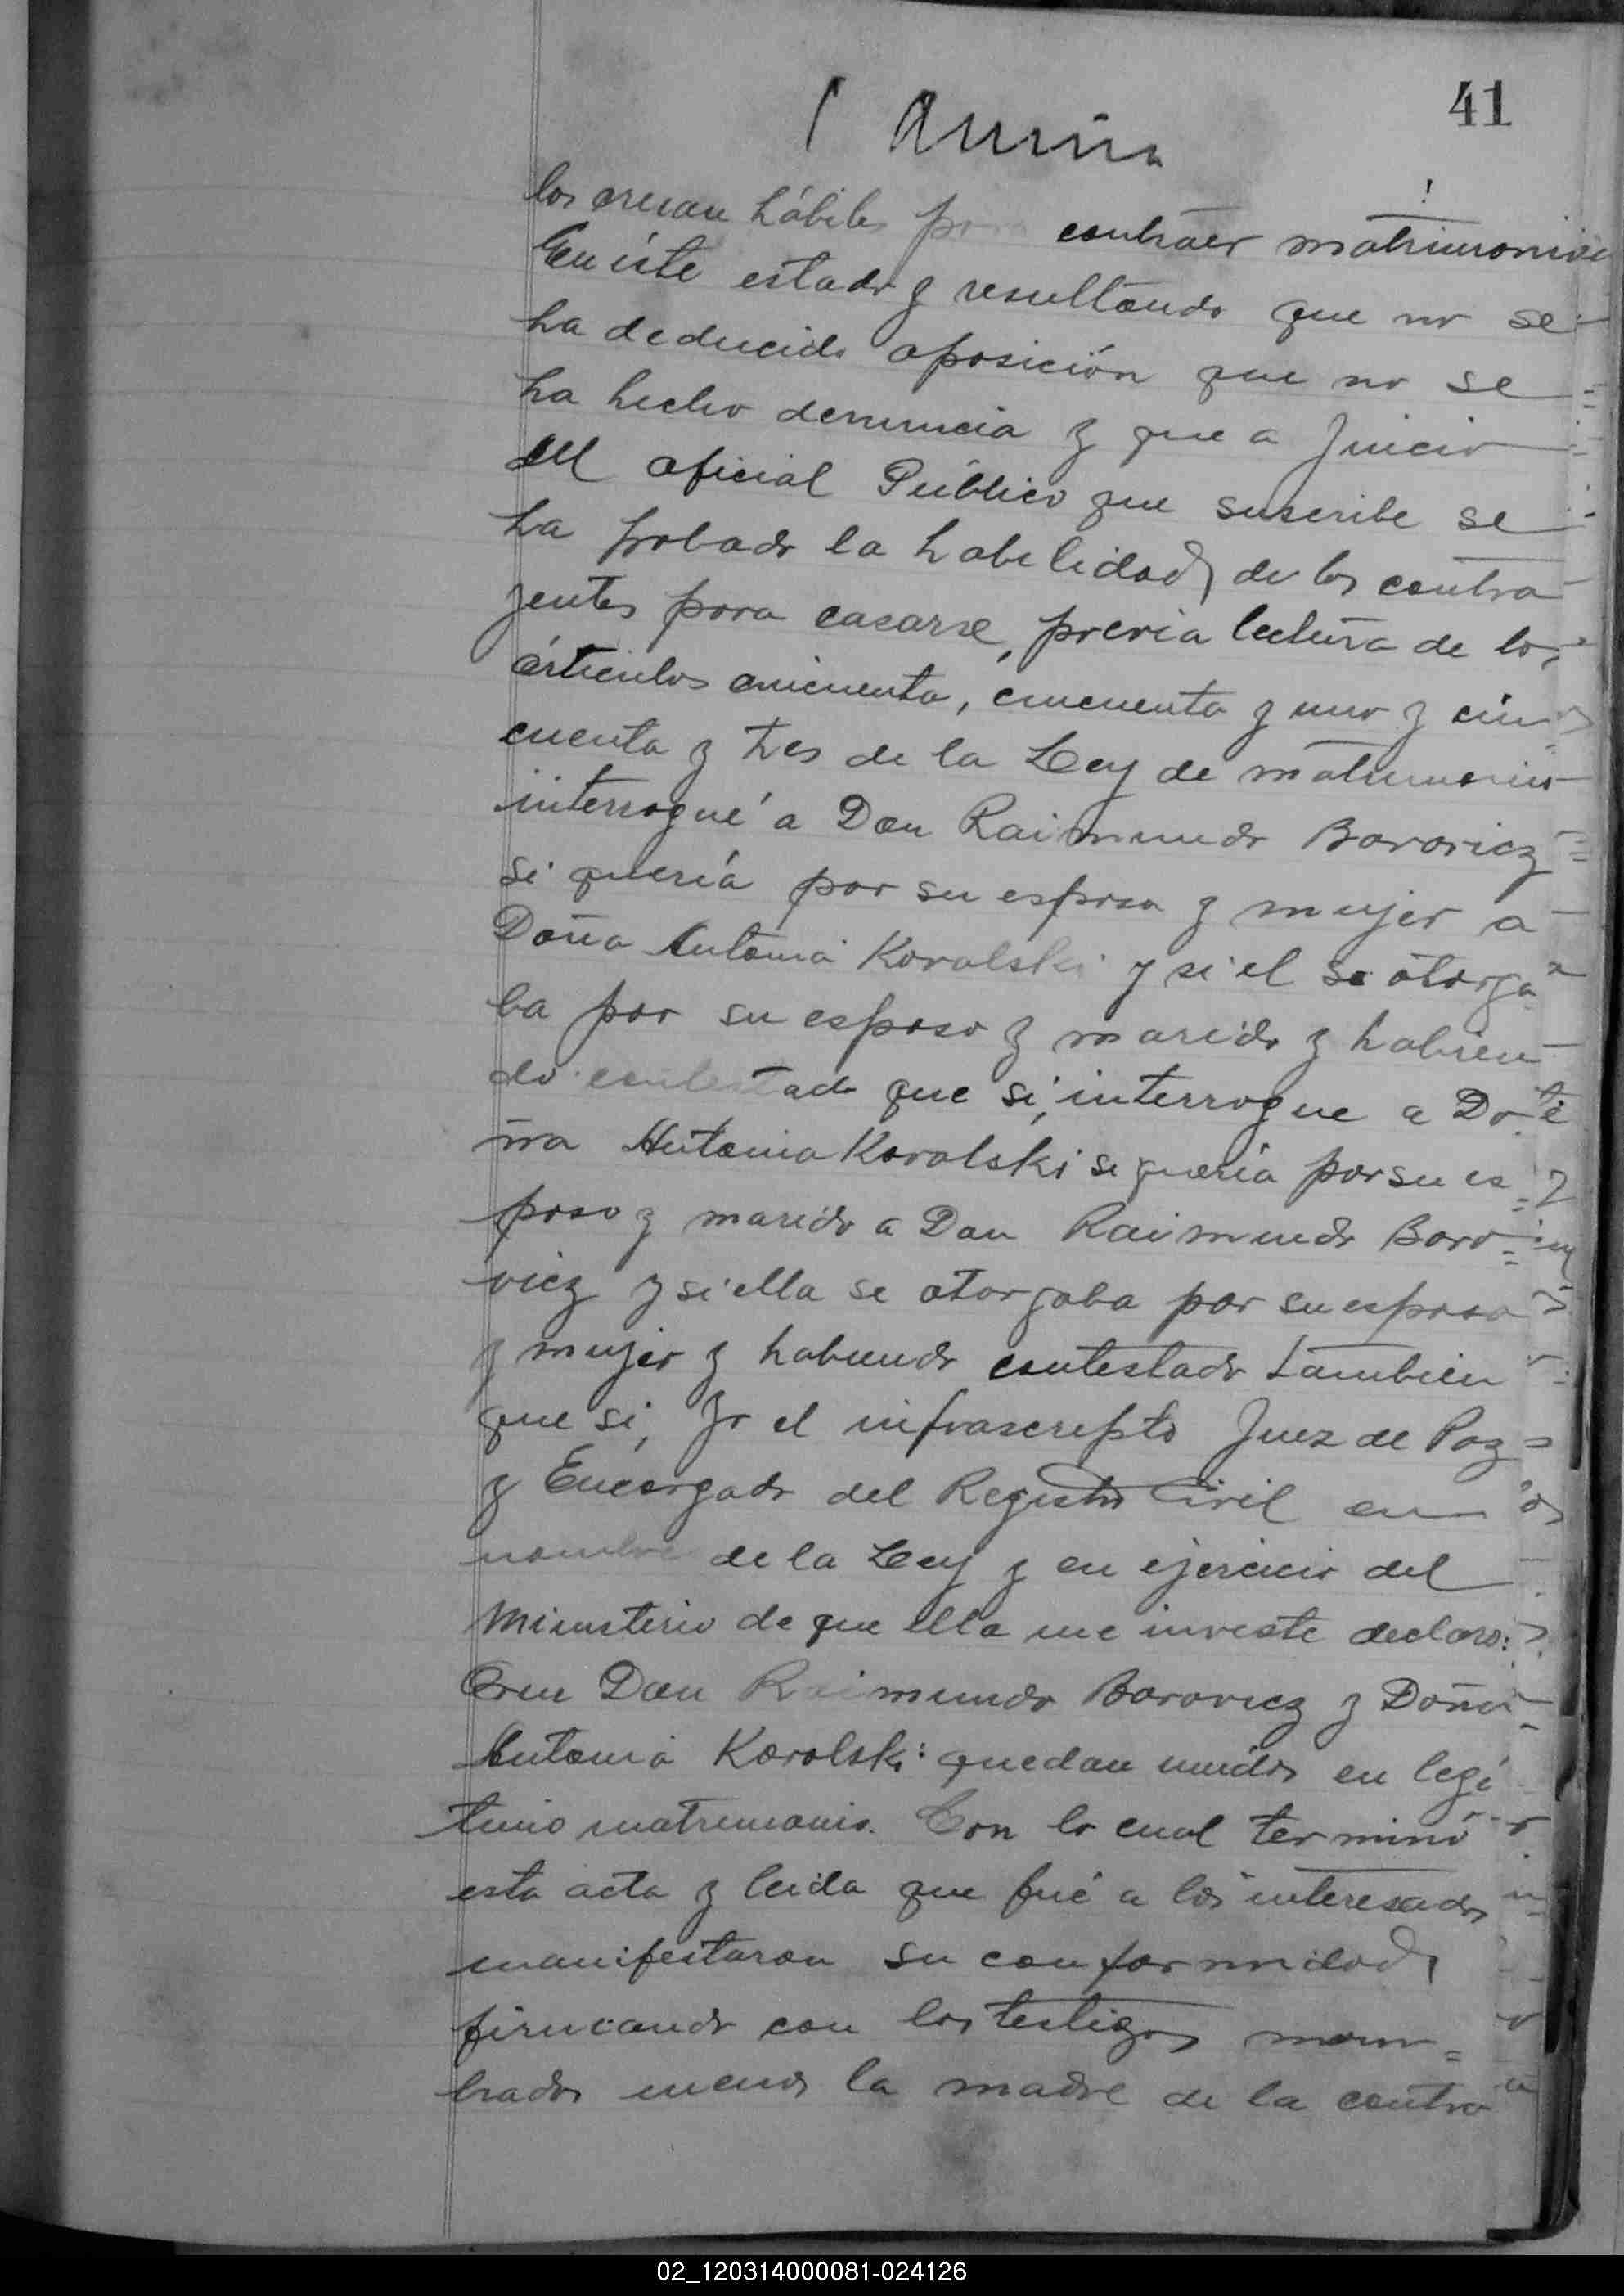 41
los creían hábiles para contraer matrimonio
En éste estado y resultando que no se
ha deducido oposición que no se
ha hecho denuncia y que a Juicio
del oficial Público que suscribe se
ha probado la habilidad de los contra
yentes para casarse, previa lectura de los
artículos cincuenta, cincuenta y uno y cin
cuenta y tres de la Ley de matrimonio
interrogué a Don Raimundo Borovicz
si quería por su esposa y mujer a
Doña Antonia Kovalski y si el se otorga
ba por su esposo y marido y habien
do contestado que si, interrogue a Do
ña Antonia Kovalski si quería por su es=
poso y marido a Don Raimundo Boro=
vicz y si ella se otorgaba por su esposa
y mujer y habiendo contestado también
que si, Yo el infrascripto Juez de Paz
y Encargado del Registro Civil en
nombre de la Ley y en ejercicio del
Ministerio de que ella me inviste declaro:
Que Don Raimundo Borovicz y Doña
Antonia Kovalski: quedan unidos en legí
timo matrimonio. Con lo cual terminó
esta acta y leida que fué a los interesados
manifestaron su conformidad
firmando con los testigos nom=
brados menos la madre de la contra
02_120314000081-024126